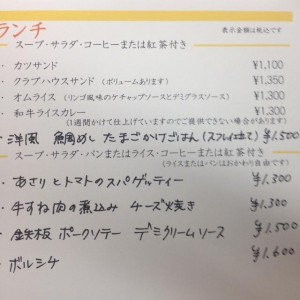 ランチ
表示金額は税込です
スープ・サラダ・コーヒーまたは紅茶付き
・ カツサンド ¥1,100
・ クラブハウスサンド (ボリュームあります) ¥1,350
・ オムライス (リンゴ風味のケチャップソースとデミグラスソース) ¥1,300
・ 和牛ライスカレー ¥1,300
(1週間かけて仕上げていますのでご提供できない場合があります)
・洋風 鯛めし たまごかけごはん ¥1,500
スープ・サラダ・パンまたはライス・コーヒーまたは紅茶付き
(ライスまたはパンはおかわり自由です)
・ あさりとトマトのスパゲッティー ¥1,300
・ 牛すね肉の煮込み チーズ焼き ¥1,300
・ 鉄板 ポークソテー デミクリームソース ¥1,500
・ ボルシチ ¥1,600